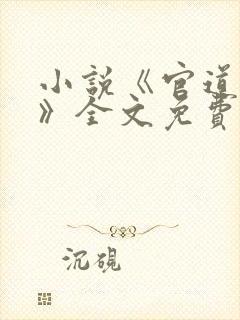 小説《官道
》全文免費
沉硯